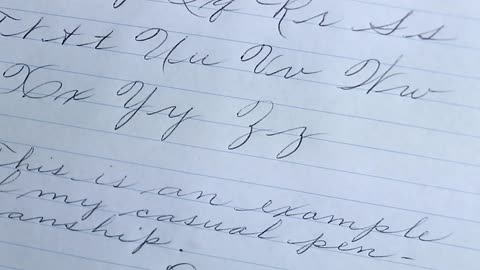 Qq Rr Ss
Tt tt Uu Vv Ww
Xx Yy Zz
This is an example
of my casual pen-
manship.